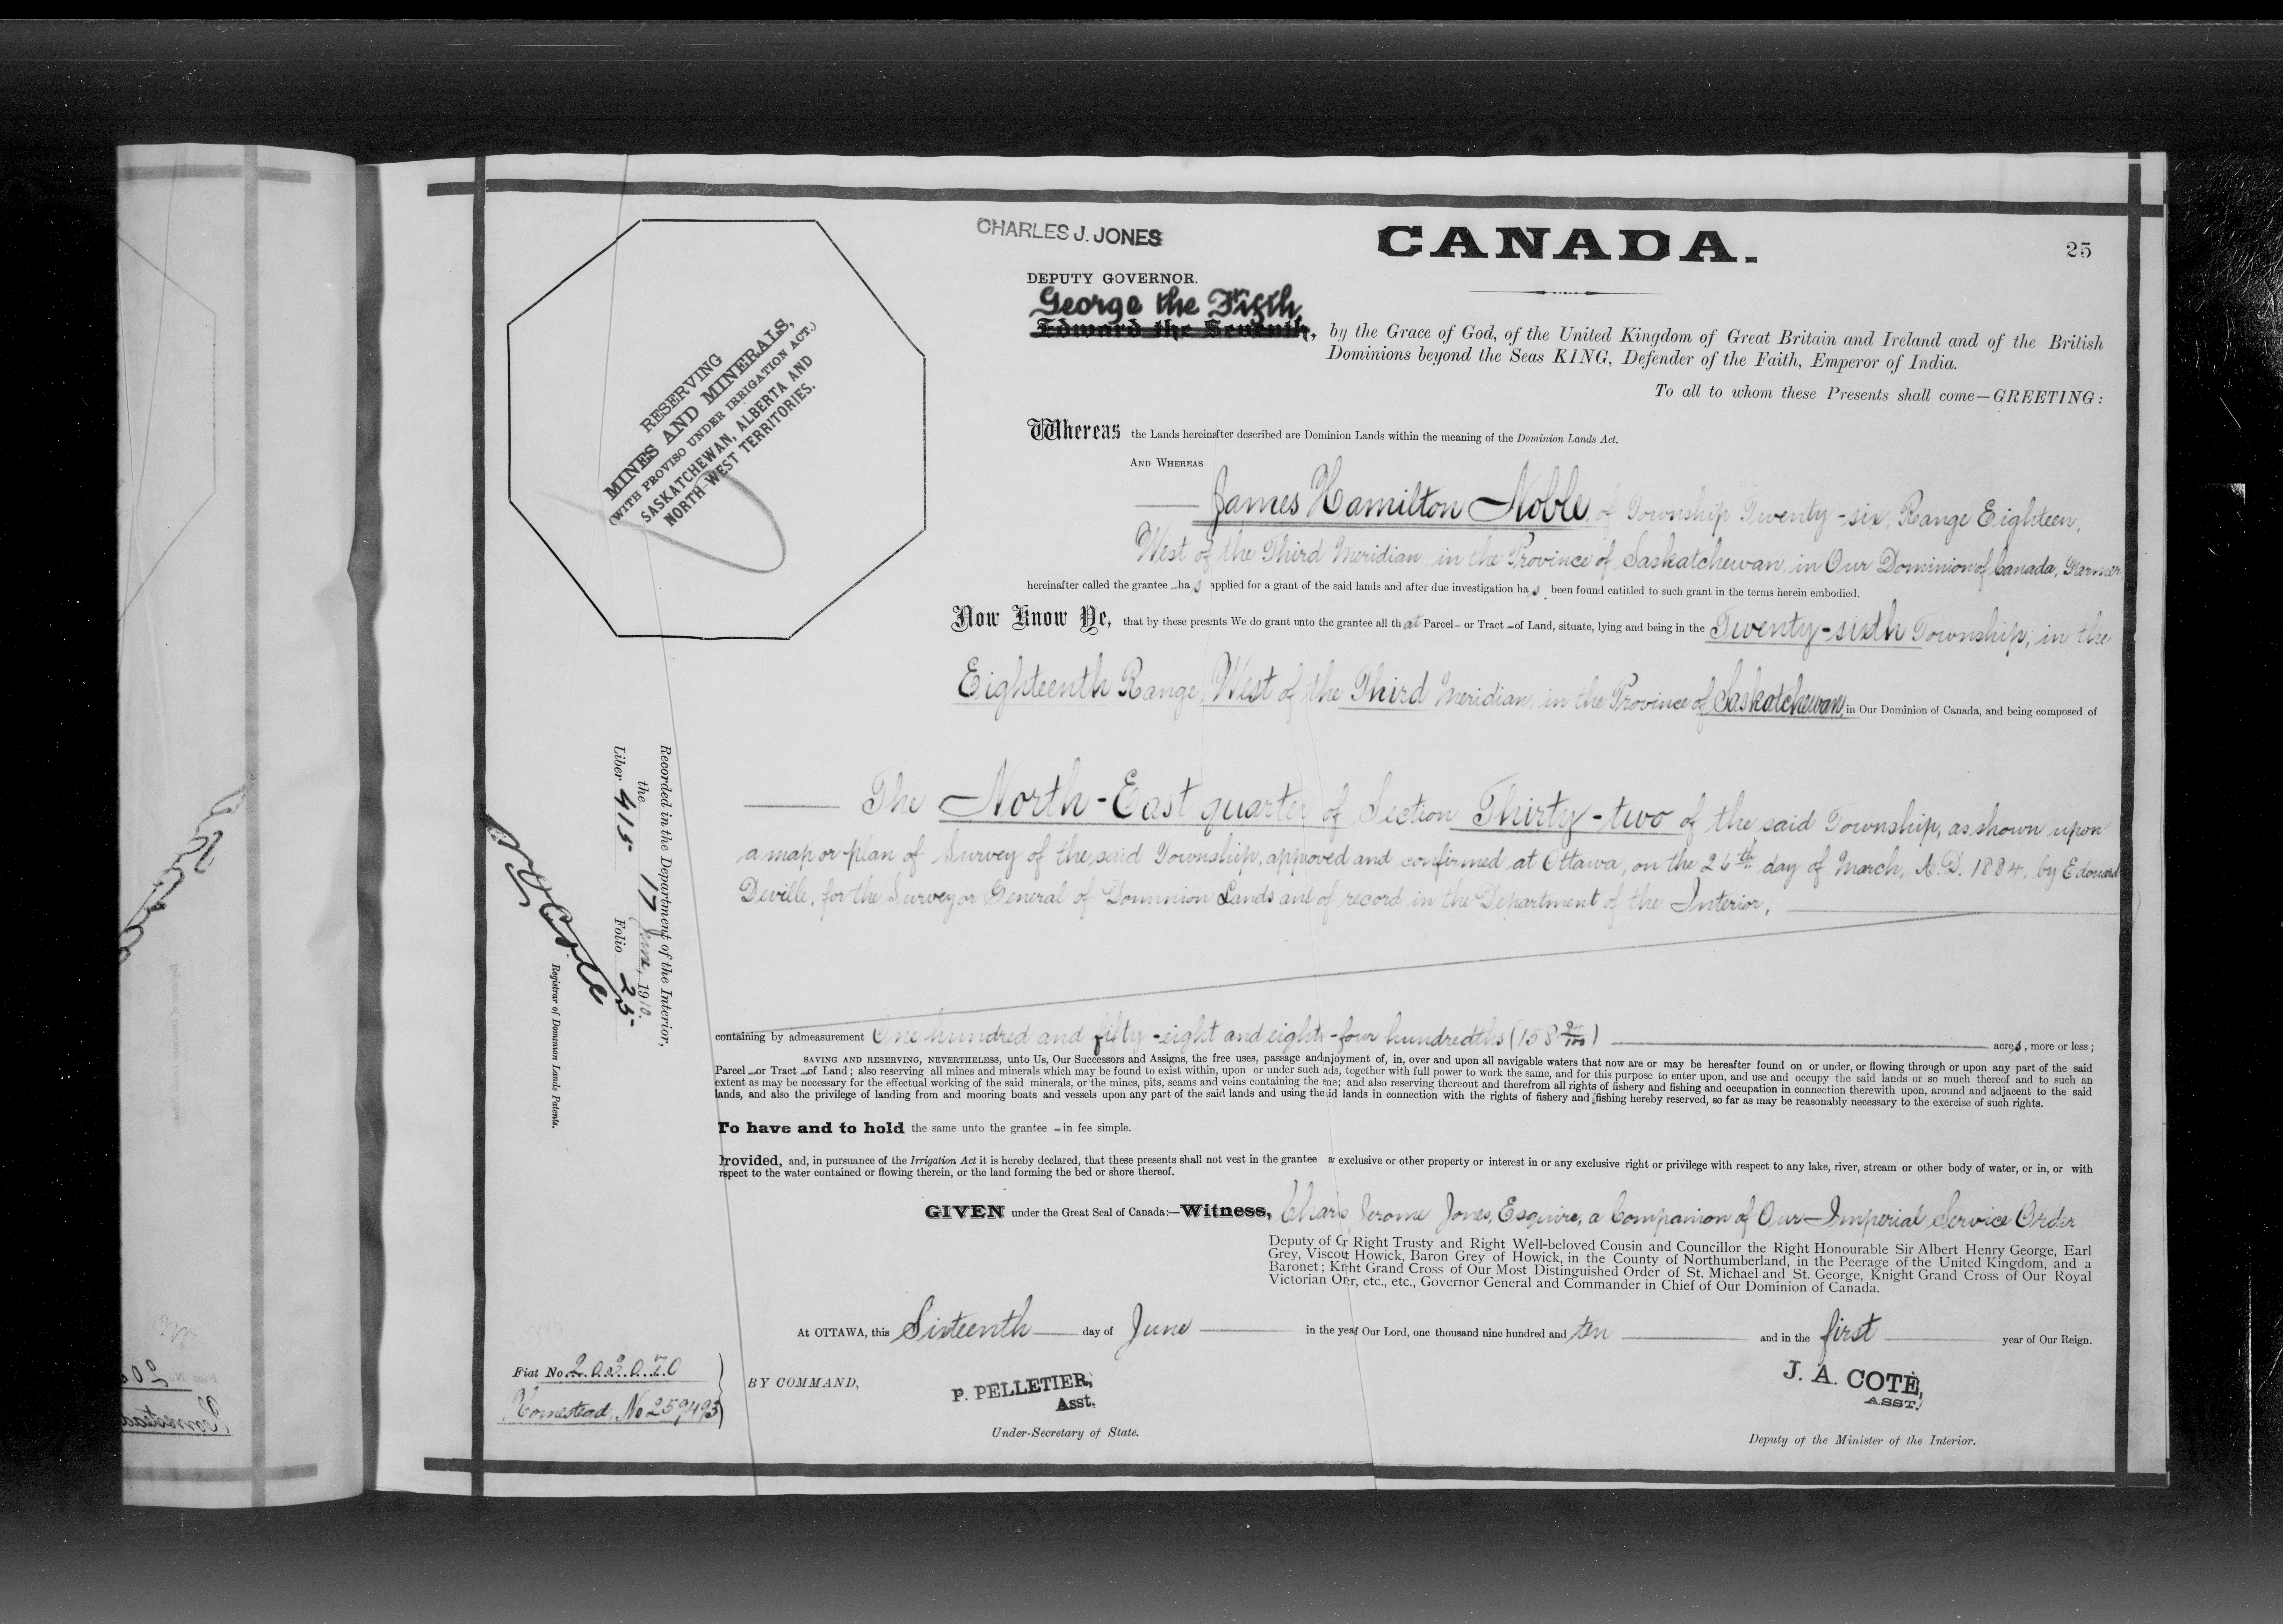 CHARLES J. JONES
CANADA.
25
DEPUTY GOVERNOR.
George the Fifth
Edward the Seventh, by the Grace of God, of the United Kingdom of Great Britain and Ireland and of the British
Dominions beyond the Seas KING, Defender of the Faith, Emperor of India.
To all to whom these Presents shall come—GREETING:
RESERVING
MINES AND MINERALS,
(WITH PROVISO UNDER IRRIGATION ACT.)
SASKATCHEWAN, ALBERTA AND
NORTH-WEST TERRITORIES.
Whereas the Lands hereinafter described are Dominion Lands within the meaning of the Dominion Lands Act.
AND WHEREAS
James Hamilton Noble, of Township Twenty-six, Range Eighteen,
West of the Third Meridian, in the Province of Saskatchewan, in Our Dominion of Canada, Farmer,
hereinafter called the grantee has applied for a grant of the said lands and after due investigation has been found entitled to such grant in the terms herein embodied.
Now Know Ye, that by these presents We do grant unto the grantee all that Parcel - or Tract - of Land, situate, lying and being in the Twenty-sixth Township, in the
Eighteenth Range, West of the Third Meridian, in the Province of Saskatchewan, in Our Dominion of Canada, and being composed of
The North-East quarter of Section Thirty-two of the said Township, as shown upon
a map or plan of Survey of the said Township, approved and confirmed at Ottawa, on the 26th day of March, A.D. 1884, by Edouard
Deville, for the Surveyor General of Dominion Lands and of record in the Department of the Interior,
containing by admeasurement One hundred and fifty-eight and eighty-four hundredths (158 84/100) acres, more or less;
SAVING AND RESERVING, NEVERTHELESS, unto Us, Our Successors and Assigns, the free uses, passage and njoyment of, in, over and upon all navigable waters that now are or may be hereafter found on or under, or flowing through or upon any part of the said
Parcel - or Tract - of Land; also reserving all mines and minerals which may be found to exist within, upon or under such ds, together with full power to work the same, and for this purpose to enter upon, and use and occupy the said lands or so much thereof and to such an
extent as may be necessary for the effectual working of the said minerals, or the mines, pits, seams and veins containing the me; and also reserving thereout and therefrom all rights of fishery and fishing and occupation in connection therewith upon, around and adjacent to the said
lands, and also the privilege of landing from and mooring boats and vessels upon any part of the said lands and using the id lands in connection with the rights of fishery and fishing hereby reserved, so far as may be reasonably necessary to the exercise of such rights.
To have and to hold the same unto the grantee - in fee simple.
Provided, and, in pursuance of the Irrigation Act it is hereby declared, that these presents shall not vest in the grantee a exclusive or other property or interest in or any exclusive right or privilege with respect to any lake, river, stream or other body of water, or in, or with
rspect to the water contained or flowing therein, or the land forming the bed or shore thereof.
GIVEN under the Great Seal of Canada:—Witness, Charls Jerome Jones, Esquire, a Companion of Our Imperial Service Order
Deputy of Or Right Trusty and Right Well-beloved Cousin and Councillor the Right Honourable Sir Albert Henry George, Earl
Grey, Viscout Howick, Baron Grey of Howick, in the County of Northumberland, in the Peerage of the United Kingdom, and a
Baronet; Knht Grand Cross of Our Most Distinguished Order of St. Michael and St. George, Knight Grand Cross of Our Royal
Victorian Orer, etc., etc., Governor General and Commander in Chief of Our Dominion of Canada.
At OTTAWA, this Sixteenth day of June in the year Our Lord, one thousand nine hundred and ten and in the first year of Our Reign.
BY COMMAND,
P. PELLETIER,
Asst.
Under-Secretary of State.
J. A. COTÉ,
ASST.
Deputy of the Minister of the Interior.
Recorded in the Department of the Interior,
the 17 June, 1910.
Liber 415 Folio 25
Registrar of Dominion Lands Patents.
Fiat No 203070
Homestead, No 259493